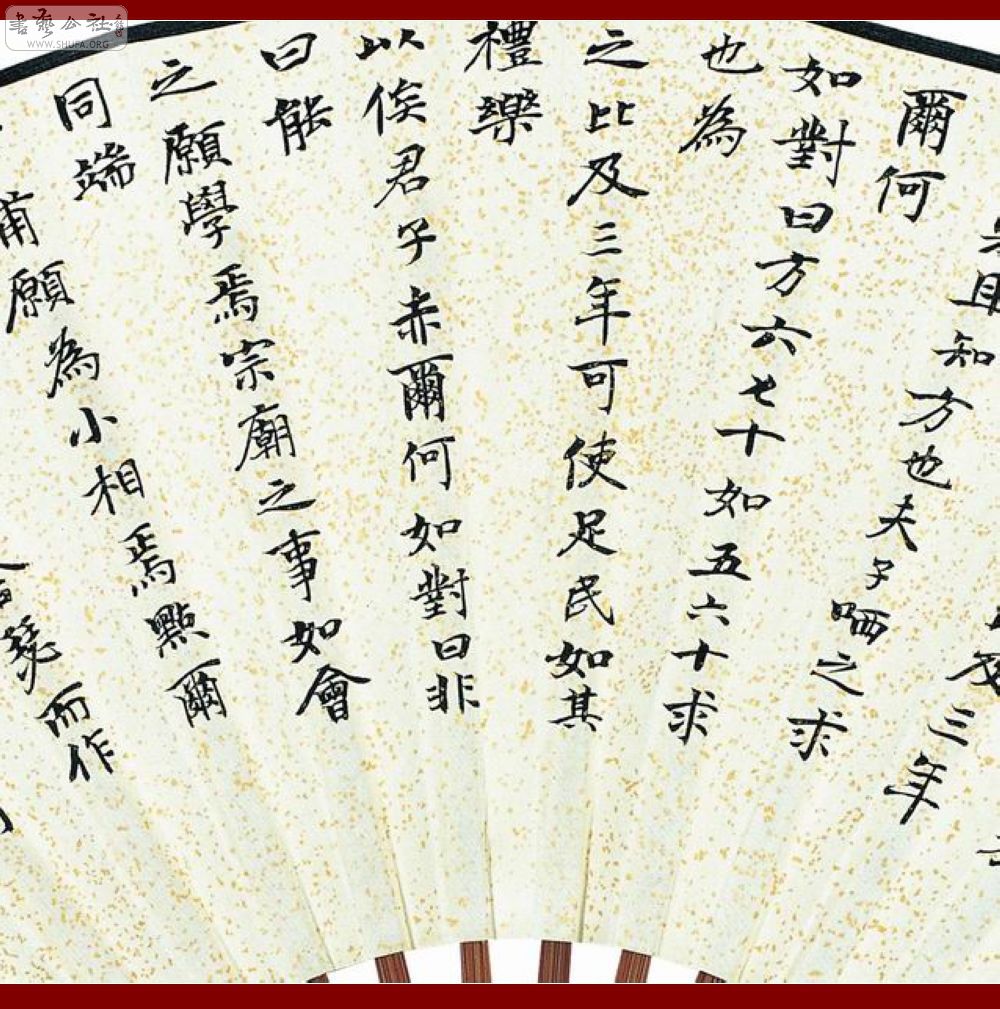 書藝公社
WWW.SHUFA.ORG
及三年
且知方也夫子哂之求
爾何
如對曰方六七十如五六十求
也為
之比及三年可使足民如其
禮樂
以俟君子赤爾何如對曰非
曰能
之願學焉宗廟之事如會
同端
甫願為小相焉點爾
瑟而作